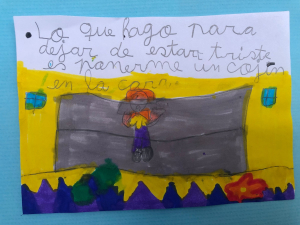 Lo que hago para
dejar de estar triste
es ponerme un cojín
en la cara.